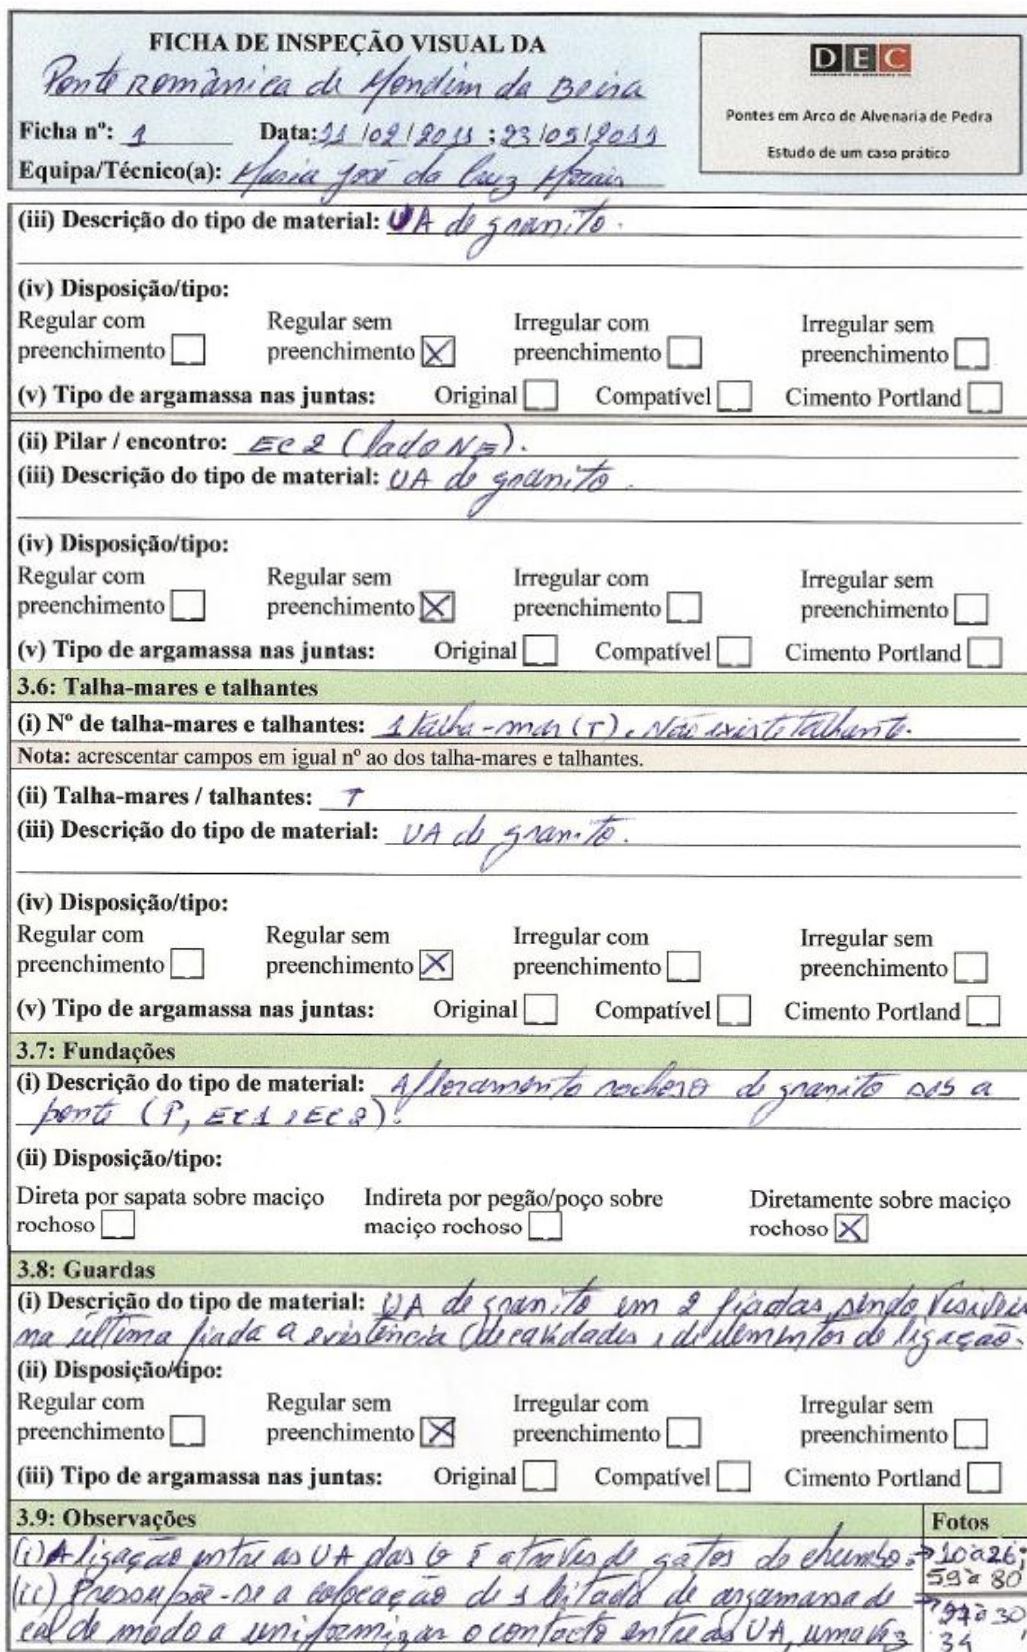 FICHA DE INSPEÇÃO VISUAL DA
Ponte Românica de Mondim da Beira
Ficha nº: 1 Data: 11/02/2011 ; 23/05/2011
Equipa/Técnico(a): Maria José da Cruz Morais
DEC
Pontes em Arco de Alvenaria de Pedra
Estudo de um caso prático
(iii) Descrição do tipo de material: UA de granito.
(iv) Disposição/tipo:
Regular com Regular sem Irregular com Irregular sem
preenchimento ☐ preenchimento ☒ preenchimento ☐ preenchimento ☐
(v) Tipo de argamassa nas juntas: Original ☐ Compatível ☐ Cimento Portland ☐
(ii) Pilar / encontro: Ec2 (lado NE).
(iii) Descrição do tipo de material: UA de granito.
(iv) Disposição/tipo:
Regular com Regular sem Irregular com Irregular sem
preenchimento ☐ preenchimento ☒ preenchimento ☐ preenchimento ☐
(v) Tipo de argamassa nas juntas: Original ☐ Compatível ☐ Cimento Portland ☐
3.6: Talha-mares e talhantes
(i) Nº de talha-mares e talhantes: 1 talha-mar (T). Não existe talhante.
Nota: acrescentar campos em igual nº ao dos talha-mares e talhantes.
(ii) Talha-mares / talhantes: T
(iii) Descrição do tipo de material: UA de granito.
(iv) Disposição/tipo:
Regular com Regular sem Irregular com Irregular sem
preenchimento ☐ preenchimento ☒ preenchimento ☐ preenchimento ☐
(v) Tipo de argamassa nas juntas: Original ☐ Compatível ☐ Cimento Portland ☐
3.7: Fundações
(i) Descrição do tipo de material: Afloramento rochoso de granito sob a
ponte (P, Ec1 e Ec2).
(ii) Disposição/tipo:
Direta por sapata sobre maciço Indireta por pegão/poço sobre Diretamente sobre maciço
rochoso ☐ maciço rochoso ☐ rochoso ☒
3.8: Guardas
(i) Descrição do tipo de material: UA de granito em 2 fiadas, sendo visíveis
na última fiada a existência de cavidades e de elementos de ligação.
(ii) Disposição/tipo:
Regular com Regular sem Irregular com Irregular sem
preenchimento ☐ preenchimento ☒ preenchimento ☐ preenchimento ☐
(iii) Tipo de argamassa nas juntas: Original ☐ Compatível ☐ Cimento Portland ☐
3.9: Observações Fotos
(i) A ligação entre as UA das G é através de gatos de chumbo. → 10 a 26;
59 a 80
(ii) Pressupõe-se a colocação de 1 leitada de argamassa de →
cal de modo a uniformizar o contacto entre as UA, uma vez